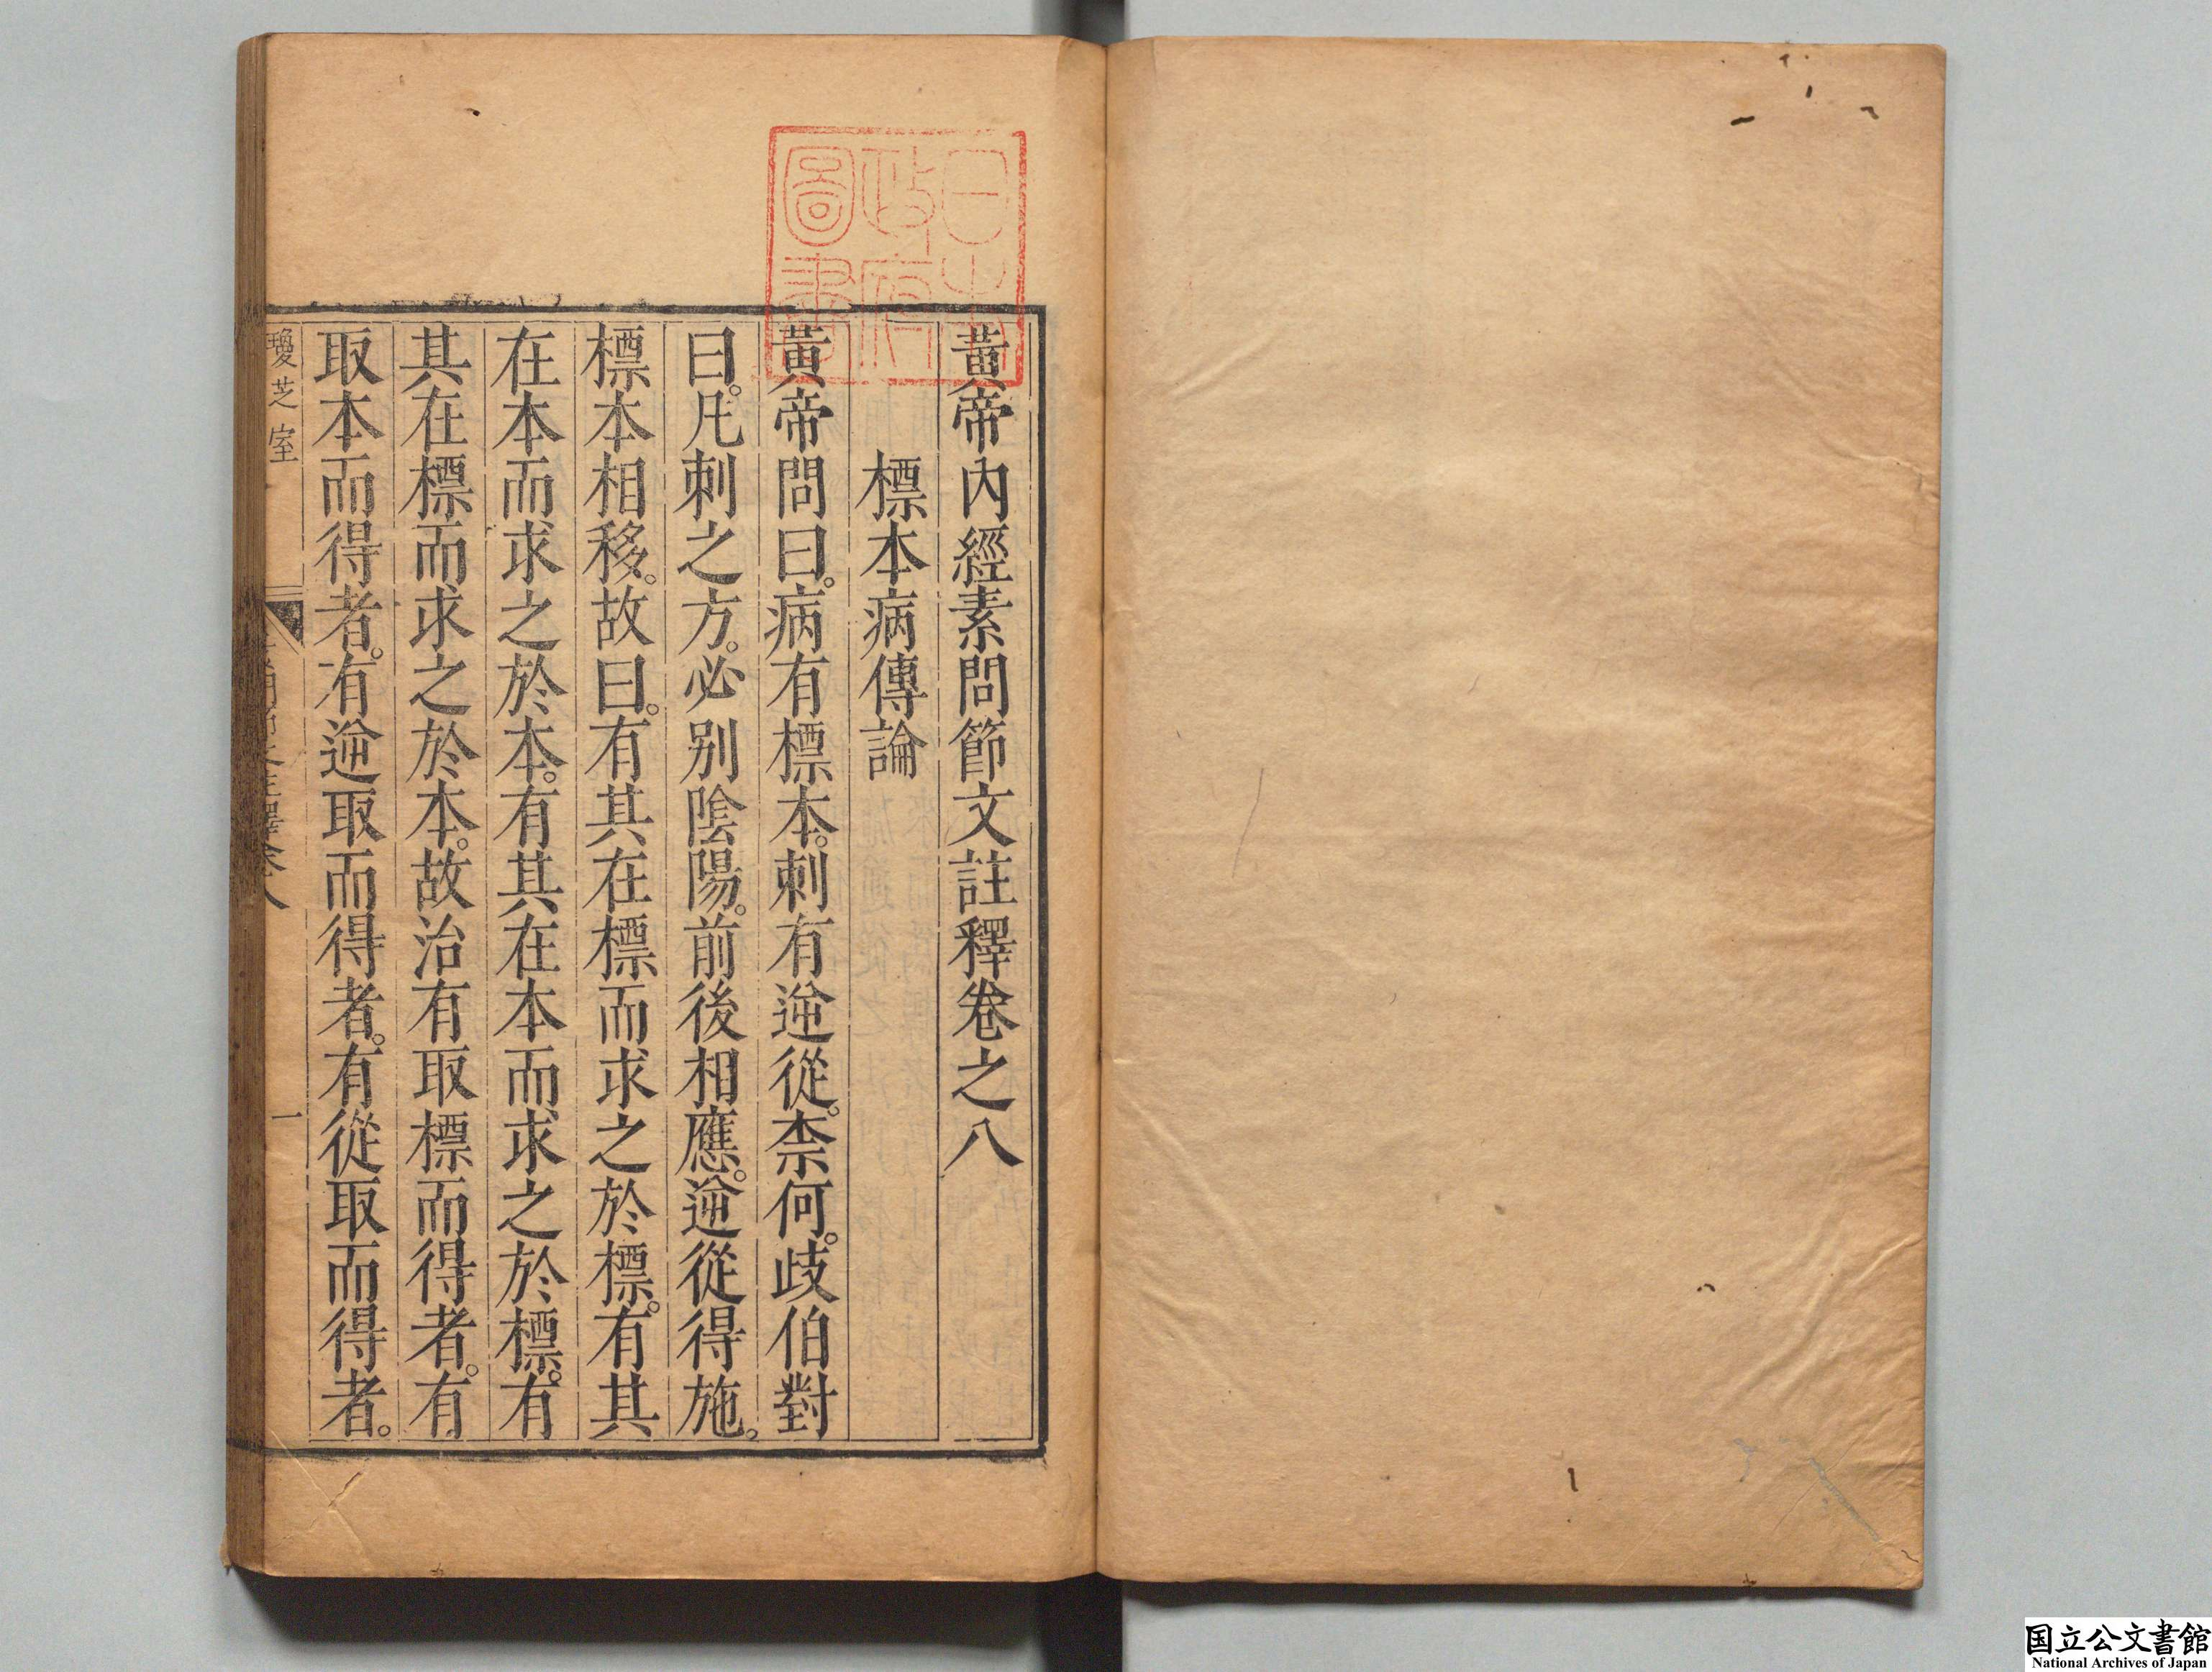 黃帝內經素問節文註釋卷之八
標本病傳論
黃帝問曰。病有標本。刺有逆從。柰何。歧伯對
曰。凡刺之方。必别陰陽。前後相應。逆從得施。
標本相移。故曰。有其在標而求之於標。有其
在本而求之於本。有其在本而求之於標。有
其在標而求之於本。故治有取標而得者。有
取本而得者。有逆取而得者。有從取而得者。
瓊芝室
一
日本
政府
圖書
国立公文書館
National Archives of Japan